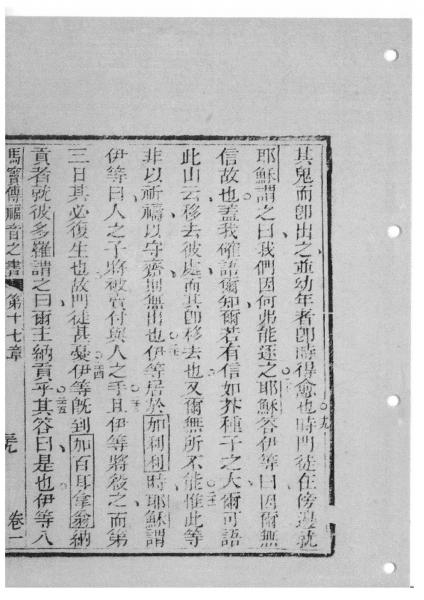 其鬼而卽出之並幼年者卽時得愈也時門徒在傍邊就
耶穌謂之曰我們因何弗能逐之耶穌答伊等曰因爾無
信故也蓋我確語爾知爾若有信如芥種子之大爾可語
此山云移去彼處而其卽移去也又爾無所不能惟此等
非以祈禱以守齋則無出也伊等居於加利利時耶穌謂
伊等曰人之子將被賣付與人之手且伊等將殺之而第
三日其必復生也故門徒甚憂伊等旣到加百耳拿翁納
貢者就彼多羅謂之曰爾主納貢乎其答曰是也伊等入
馬竇傳福音之書 第十七章 卷一